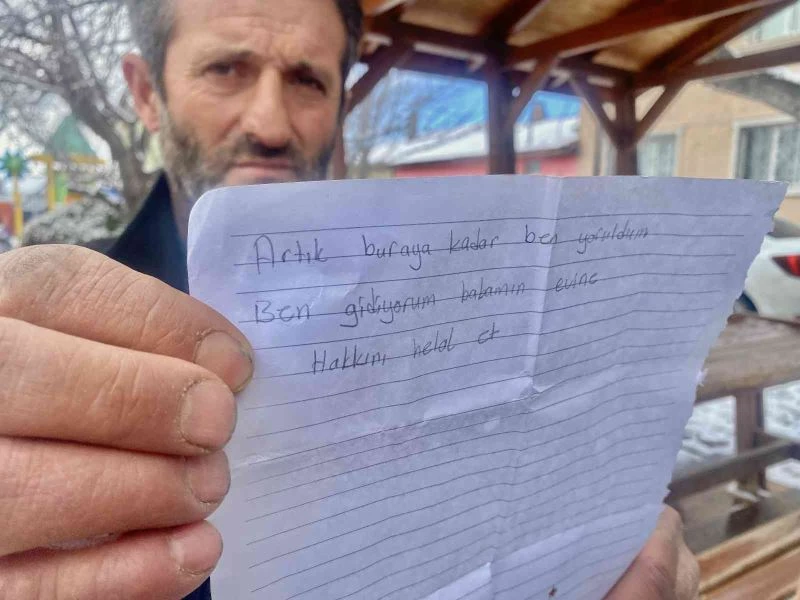 Artık buraya kadar ben yoruldum
Ben gidiyorum babamın evine
Hakkını helal et